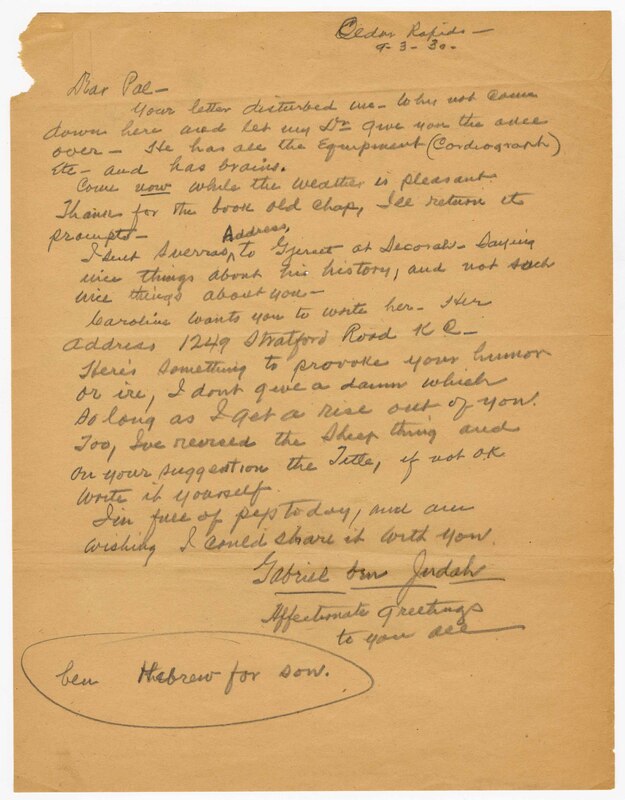 Cedar Rapids —
9-3-30-
Dear Pal —
Your letter disturbed me - Why not come
down here and let my Dr give you the once
over - He has all the Equipment (Cardiograph)
Etc - and has brains.
Come now while the weather is pleasant
Thanks for the book old chap, I'll return it
prompto -
Address,
I sent to Gjerset at Decorah - Saying
nice things about his history, and not such
nice things about you -
Caroline wants you to write her - Her
address 1249 Stratford Road K C -
Here's something to provoke your humor
or ire, I dont give a damn which
so long as I get a rise out of you.
Too, I've revised the Sheep thing and
on your suggestion the Title, if not OK
write it yourself.
I'm full of pep today, and am
wishing I could share it with you.
Gabriel ben Judah
Affectionate greetings
to you all
ben Hebrew for son.